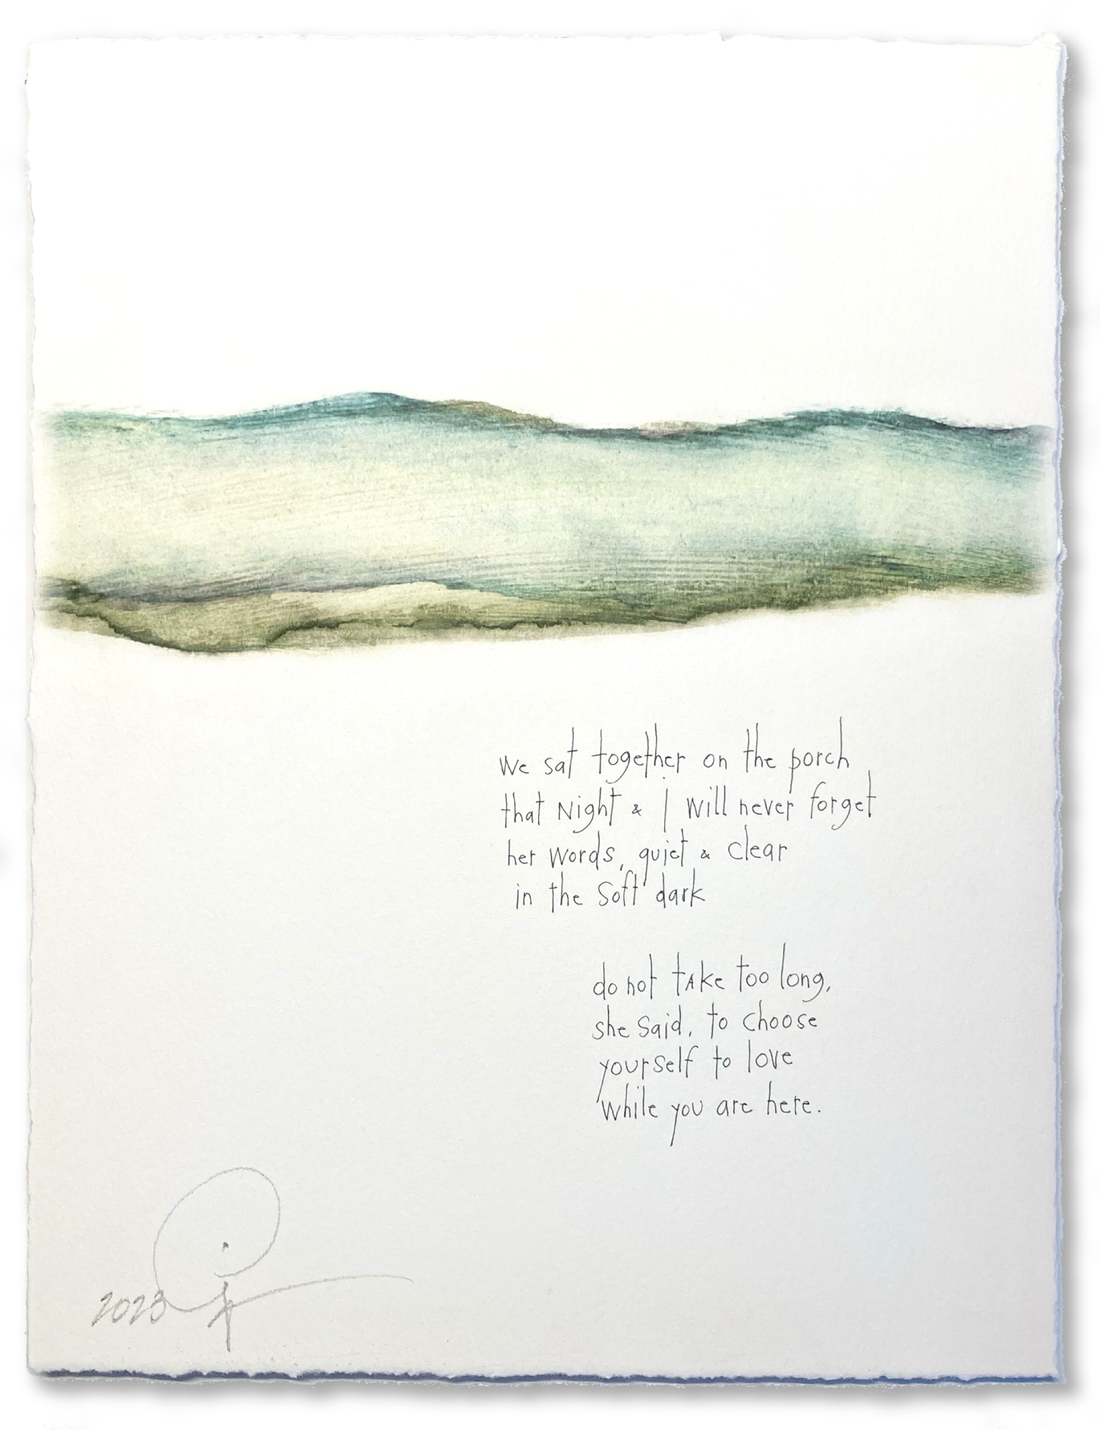 we sat together on the porch
that Night & I will never forget
her words, quiet & clear
in the soft dark
do not tAke too long,
she said, to choose
yourself to love
while you are here.
2023